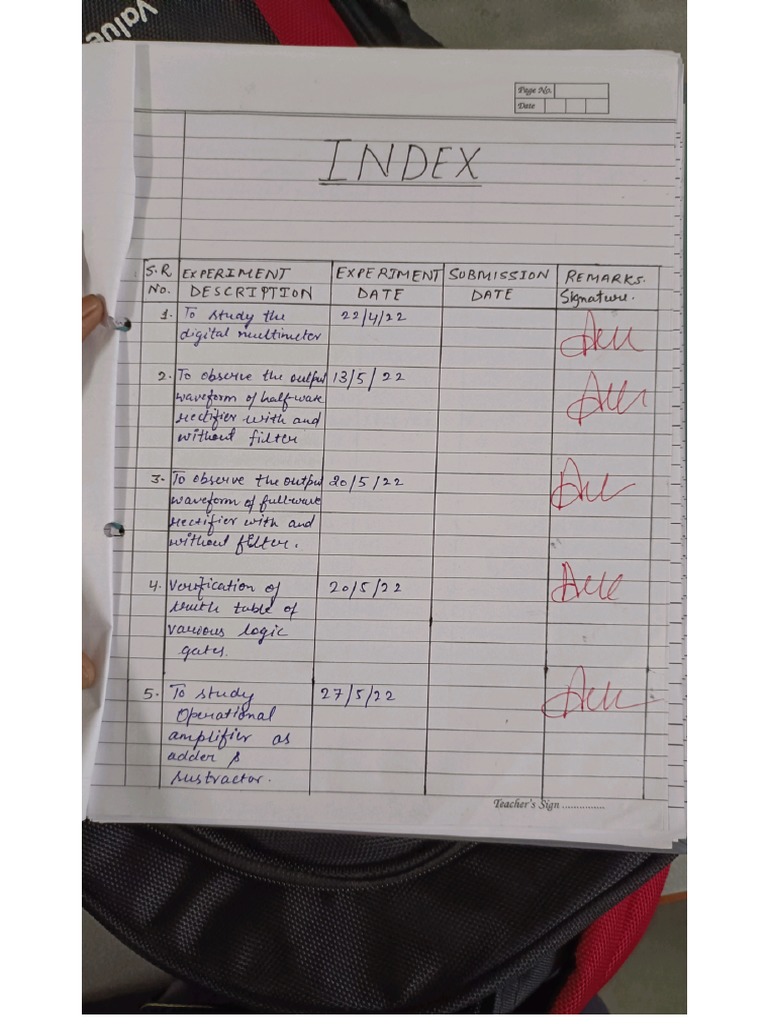 Value
Page No.
Date
INDEX
S.R EXPERIMENT EXPERIMENT SUBMISSION REMARKS.
No. DESCRIPTION DATE DATE Signature.
1. To study the 22/4/22
digital multimeter
2. To observe the output 13/5/22
waveform of half wave
rectifier with and
without filter
3. To observe the output 20/5/22
waveform of full wave
rectifier with and
without filter.
4. Verification of 20/5/22
truth table of
various logic
gates.
5. To study 27/5/22
Operational
amplifier as
adder &
sustractor.
Teacher's Sign ...............